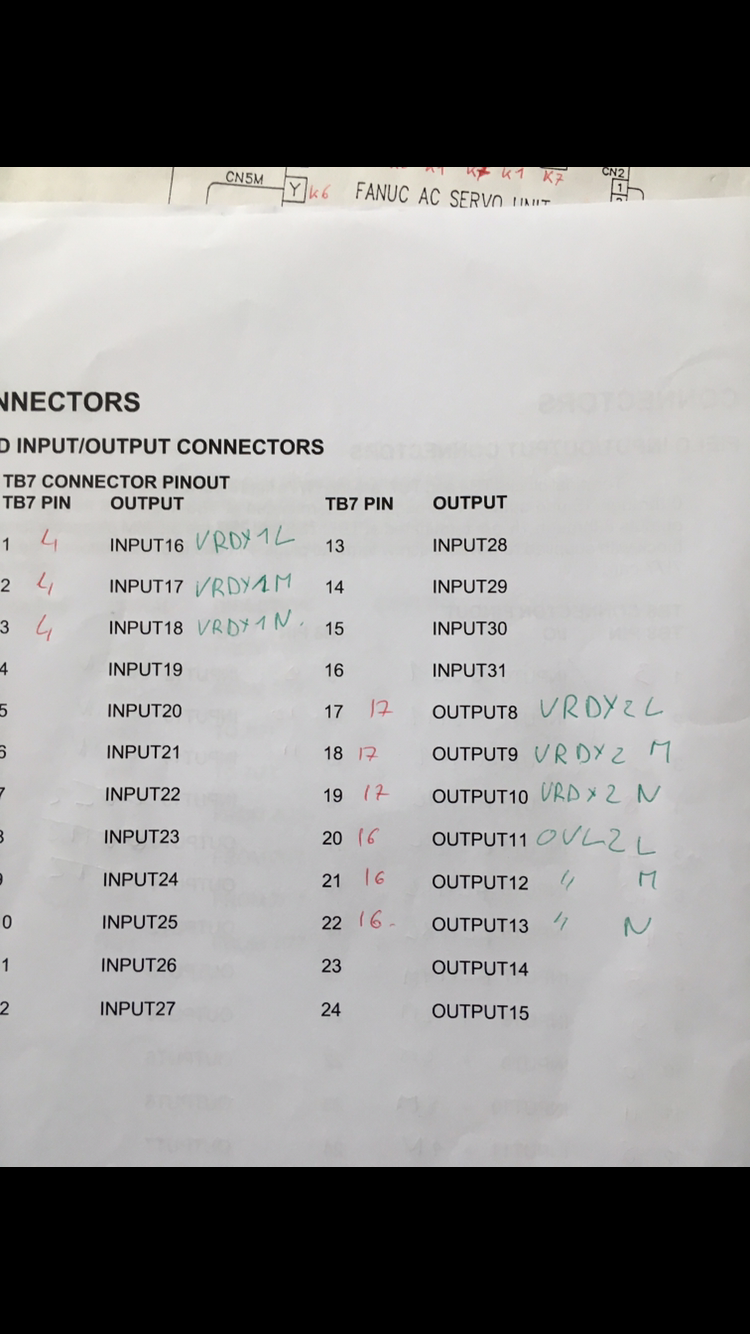 K1 K7 K1 K7
CN5M CN2
Y K6 FANUC AC SERVO UNIT 1
NNECTORS
D INPUT/OUTPUT CONNECTORS
TB7 CONNECTOR PINOUT
TB7 PIN OUTPUT TB7 PIN OUTPUT
1 4 INPUT16 VRDY1L 13 INPUT28
2 4 INPUT17 VRDY1M 14 INPUT29
3 4 INPUT18 VRDY1N. 15 INPUT30
4 INPUT19 16 INPUT31
5 INPUT20 17 17 OUTPUT8 VRDY2L
6 INPUT21 18 17 OUTPUT9 VRDY2 M
7 INPUT22 19 17 OUTPUT10 VRDY2 N
8 INPUT23 20 16 OUTPUT11 OVL2 L
9 INPUT24 21 16 OUTPUT12 " M
0 INPUT25 22 16- OUTPUT13 " N
1 INPUT26 23 OUTPUT14
2 INPUT27 24 OUTPUT15